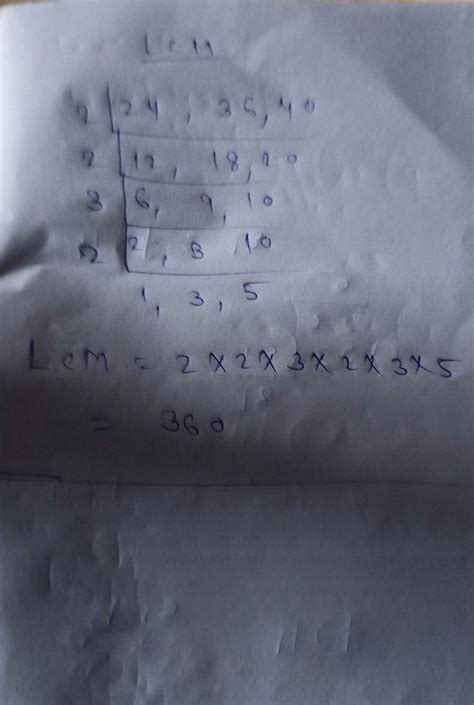 LCM
2 | 24, 36, 40
2 | 12, 18, 20
3 | 6, 9, 10
2 | 2, 3 10
1, 3, 5
LCM = 2 X 2 X 3 X 2 X 3 X 5
= 360